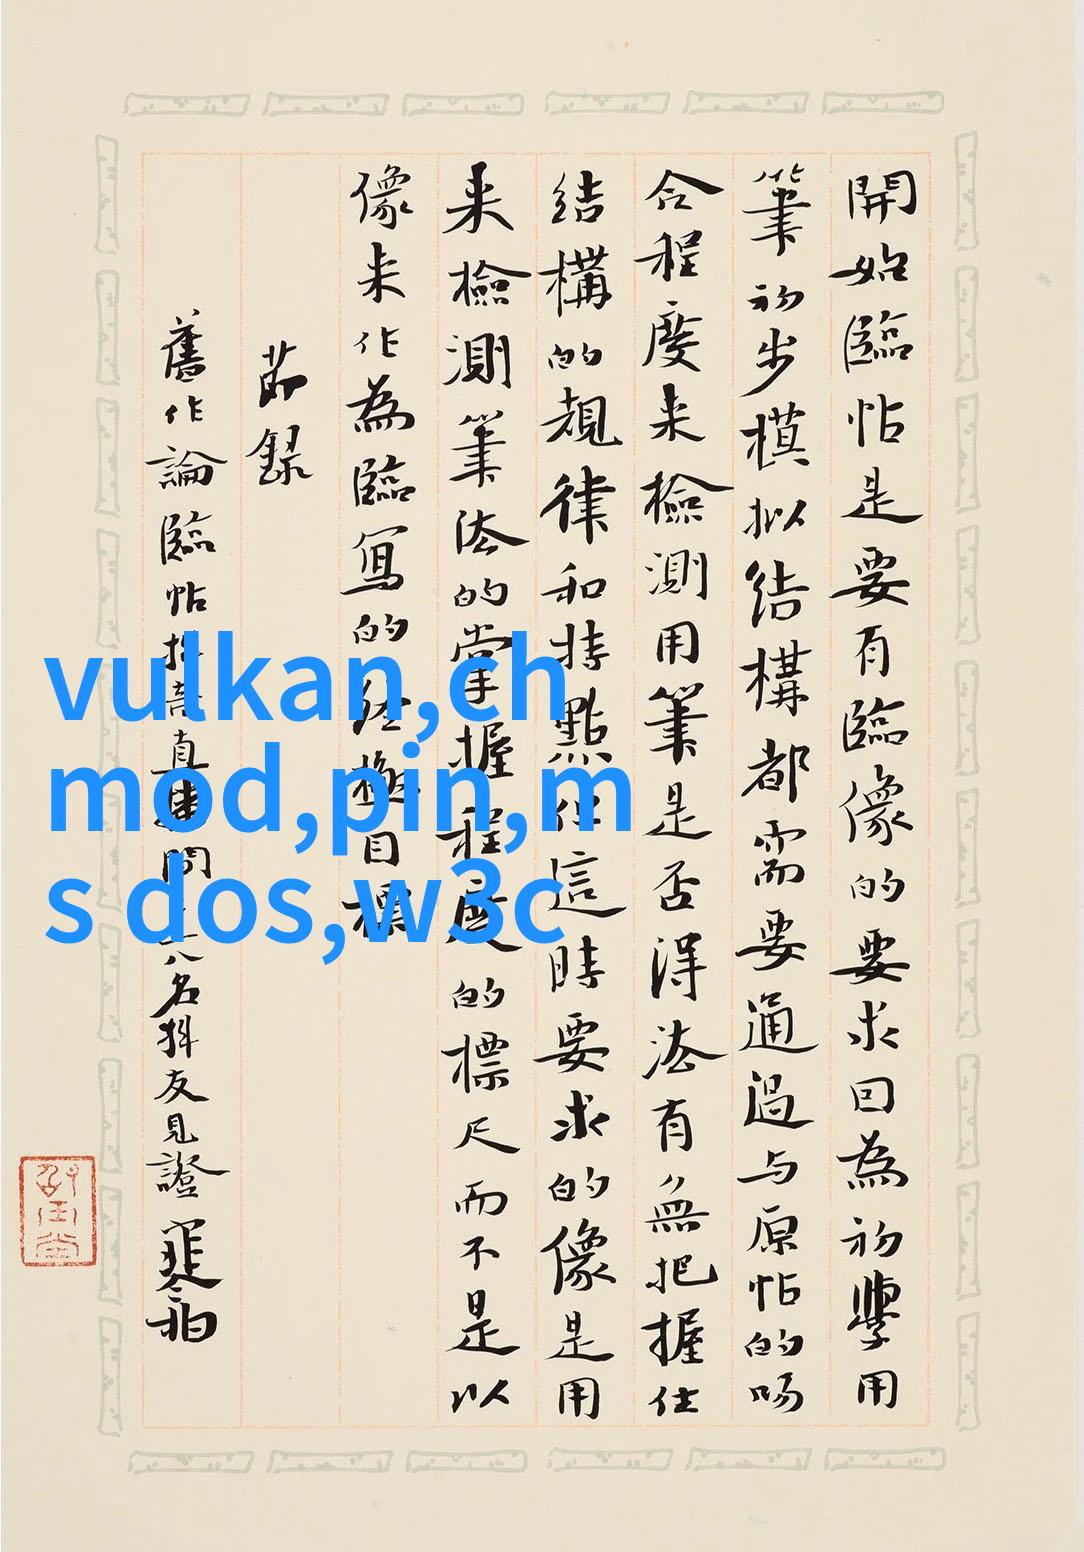 開始臨帖是要有臨像的要求因為初學用
筆初步模拟结構都需要通過与原帖的吻
合程度来檢測用筆是否得法有無把握住
结構的規律和特點但這時要求的像是用
来檢測筆法的掌握程度的標尺而不是以
像来作為臨寫的终極目標
節録
舊作論臨帖抖音直播間八名抖友見證
vulkan,ch
mod,pin,m
s dos,w3c